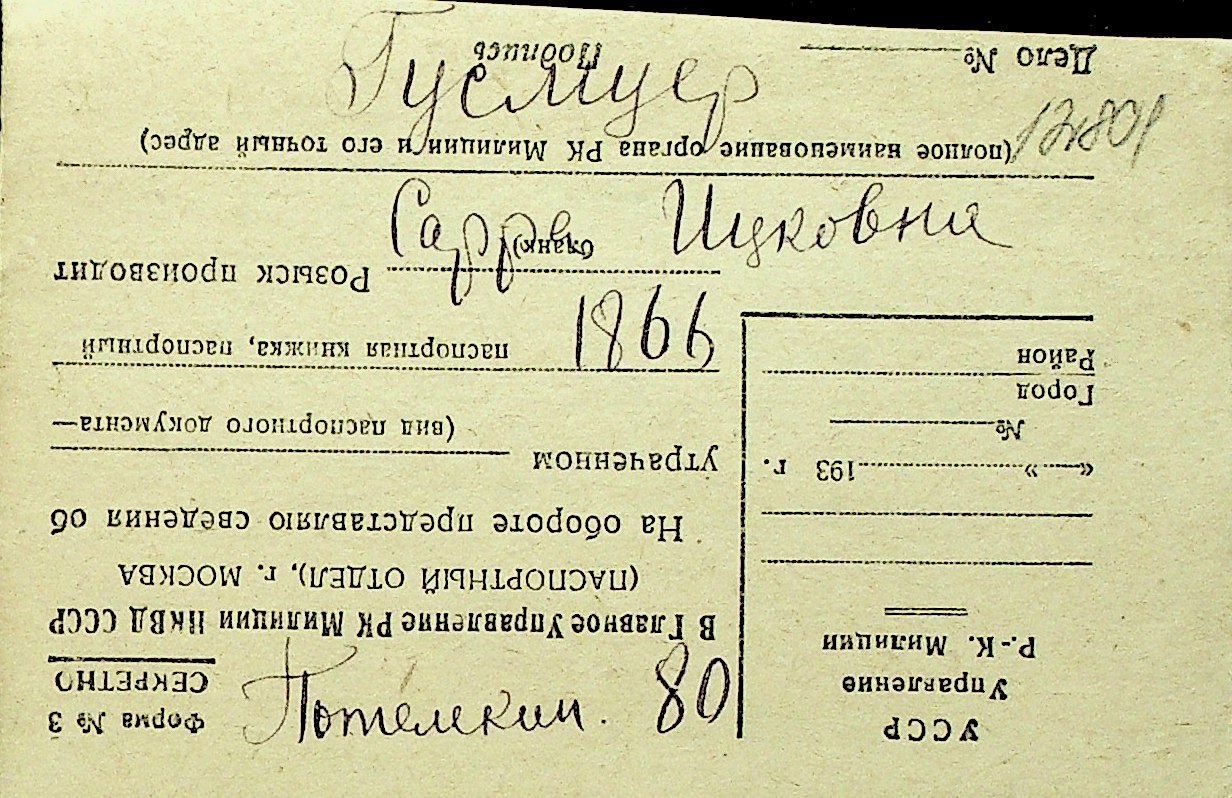 Гусмуер
12801
Сарра Ицковна
Потемкин. 80
УССР
Управление
Р.-К. Милиции
« » 193 г.
№
Город
Район
Форма № 3
СЕКРЕТНО
В Главное Управление РК Милиции НКВД СССР
(ПАСПОРТНЫЙ ОТДЕЛ), г. МОСКВА
На обороте представляю сведения об
утраченном
(вид паспортного документа—
паспортная книжка, паспортный
бланк)
Розыск производит
(полное наименование органа РК Милиции и его точный адрес)
Дело №
Подпись